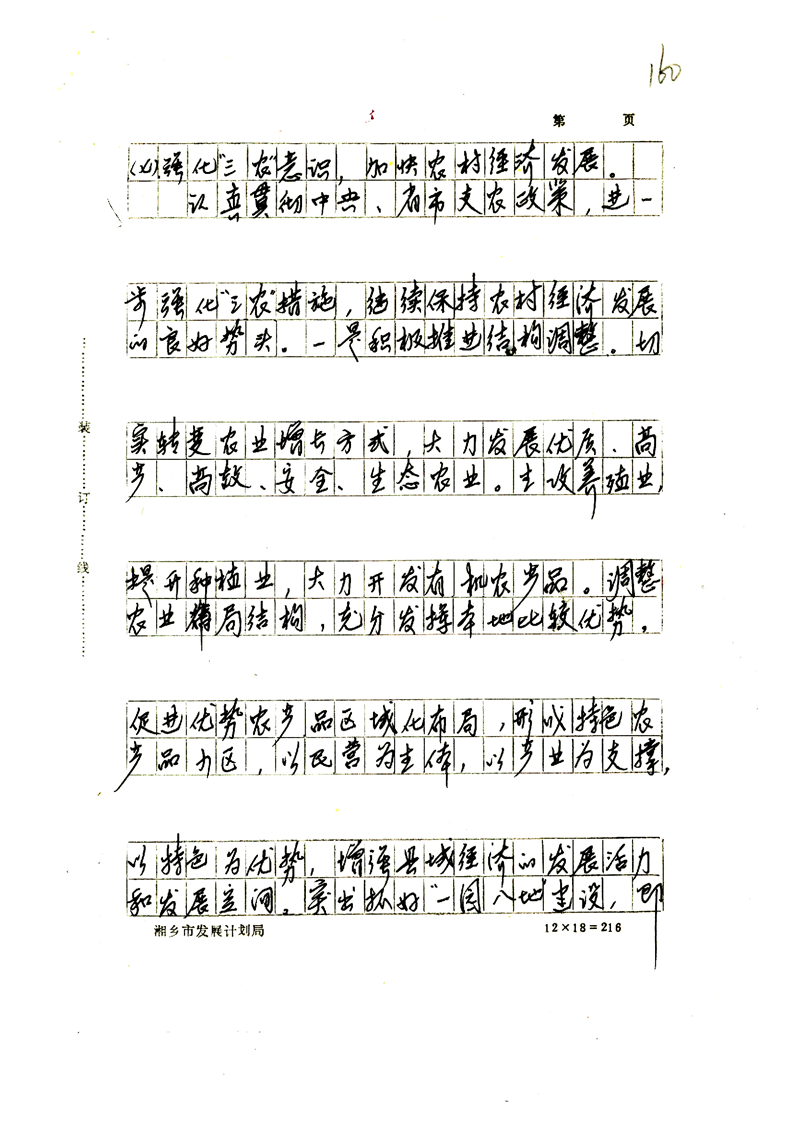 160
第 页
(七)强化"三农"意识，加快农村经济发展。
认真贯彻中央、省市支农政策，进一
步强化"三农"措施，继续保持农村经济发展
的良好势头。一是积极推进结构调整。切
实转变农业增长方式，大力发展优质、高
产、高效、安全、生态农业。主攻养殖业，
提升种植业，大力开发有机农产品。调整
农业布局结构，充分发挥本地比较优势，
促进优势农产品区域化布局，形成特色农
产品小区，以民营为主体，以产业为支撑，
以特色为优势，增强县域经济的发展活力
和发展空间。突出抓好"一园八地"建设，即
湘乡市发展计划局
12×18=216
装订线